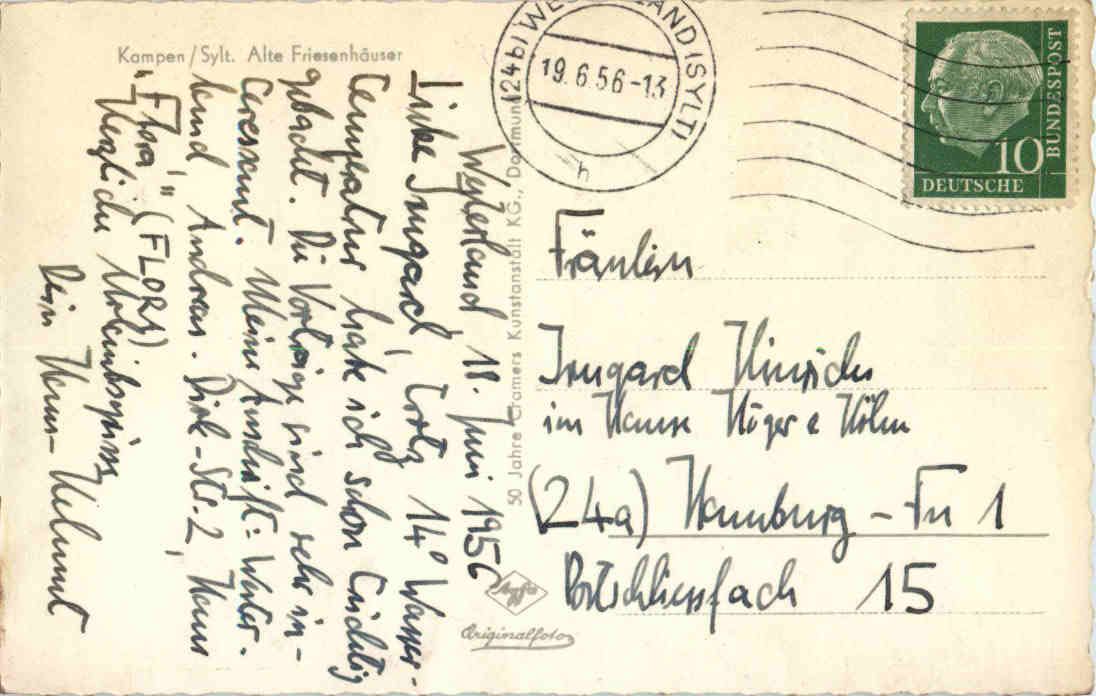 Kampen/Sylt. Alte Friesenhäuser
(24b) WESTERLAND (SYLT)
19.6.56-13
h
10
DEUTSCHE
BUNDESPOST
Westerland, 18. Juni 1956
Liebe Irmgard, trotz 14° Wasser-
temperatur habe ich schon tüchtig
gebadet. Die Vorträge sind sehr in-
teressant. Meine Anschrift: Wester-
land Andreas-Dirk-Str. 2, Haus
"Flora" (FLORA)
Herzliche
Dein Hans-Helmut
50 Jahre Cramers Kunstanstalt KG., Dortmund
Agfa
Originalfoto
Fräulein
Irmgard Hinrichs
im Hause Höger & Höhn
(24a) Hamburg - Fu 1
Postschliessfach 15